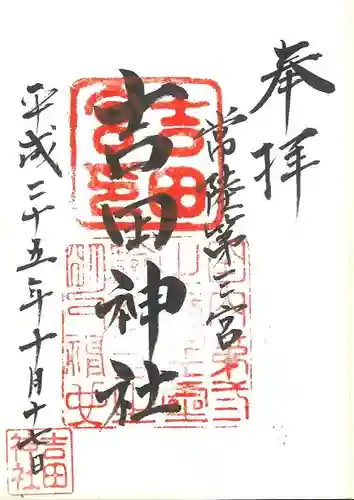 奉拝
常陸第三宮
吉田神社
平成二十五年十月十七日
吉田
神社